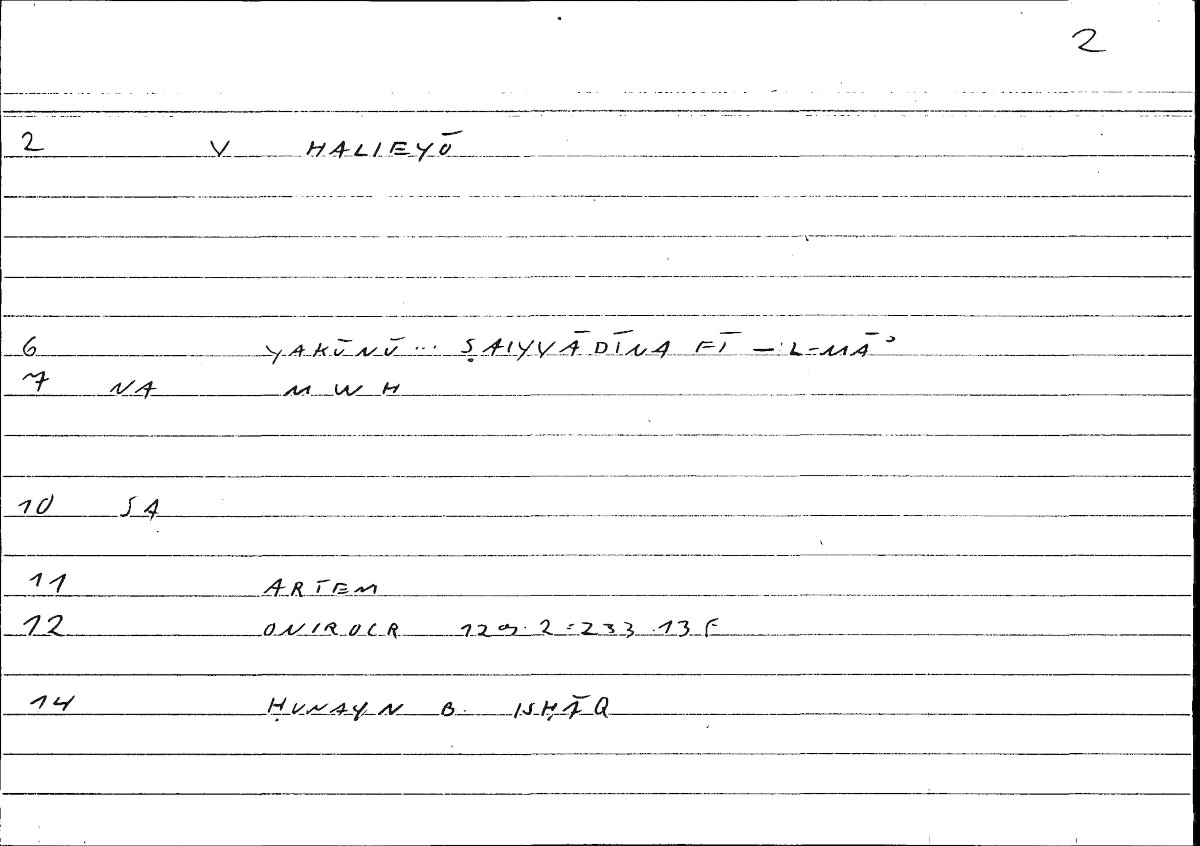 2
2 V HALIEYŌ
6 YAKŪNŪ... ṢAIYVĀDĪNA FĪ –'L-MĀ'
7 NA M W H
10 SA
11 ARTEM
12 ONIROCR 129.2=233.13 F
14 ḤUNAYN B. ISḤĀQ